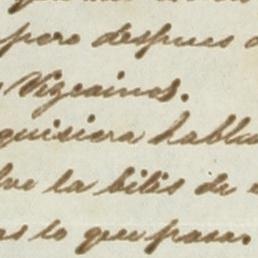 pero despues
Vizcainos.
quisiera habla
la bilis de
lo que pasa.